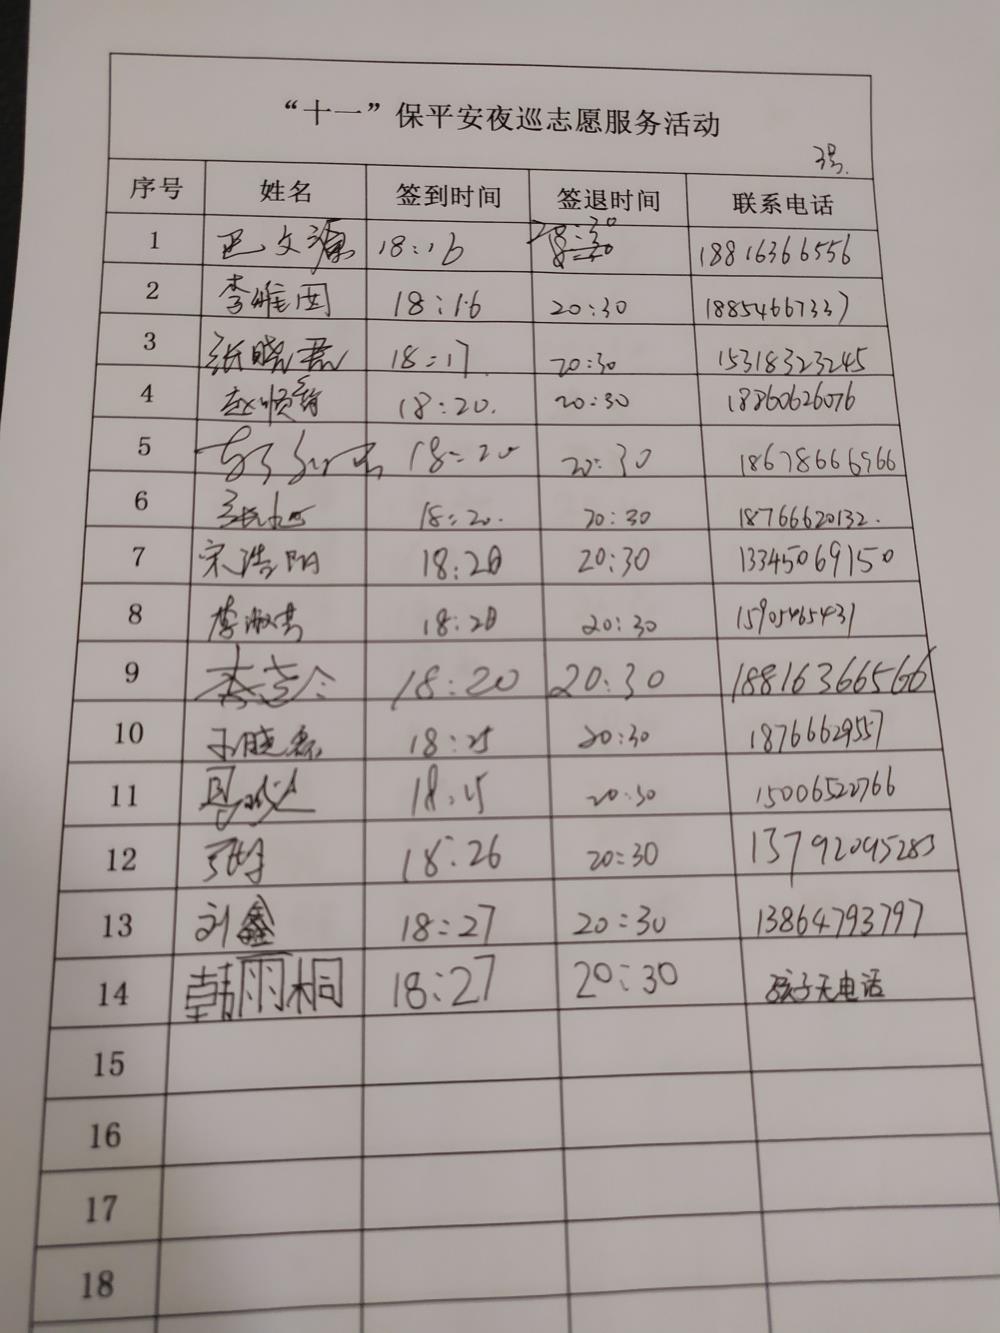 “十一”保平安夜巡志愿服务活动
3号.
序号 姓名 签到时间 签退时间 联系电话
1 巴文 18:16 18816366556
2 李维国 18:16 20:30 18854667337
3 张晓燕 18:17 20:30 15318323245
4 赵顺 18:20. 20:30 18860626076
5 18:20 20:30 18678666966
6 18:20. 20:30 18766620132.
7 宋浩阳 18:20 20:30 13345069150
8 李淑芳 18:20 20:30 15905465431
9 18:20 20:30 18816366566
10 王晓磊 18:25 20:30 18766629557
11 18:25 20:30 15006522766
12 18:26 20:30 13792095283
13 刘鑫 18:27 20:30 13864793797
14 韩雨桐 18:27 20:30 孩子无电话
15
16
17
18